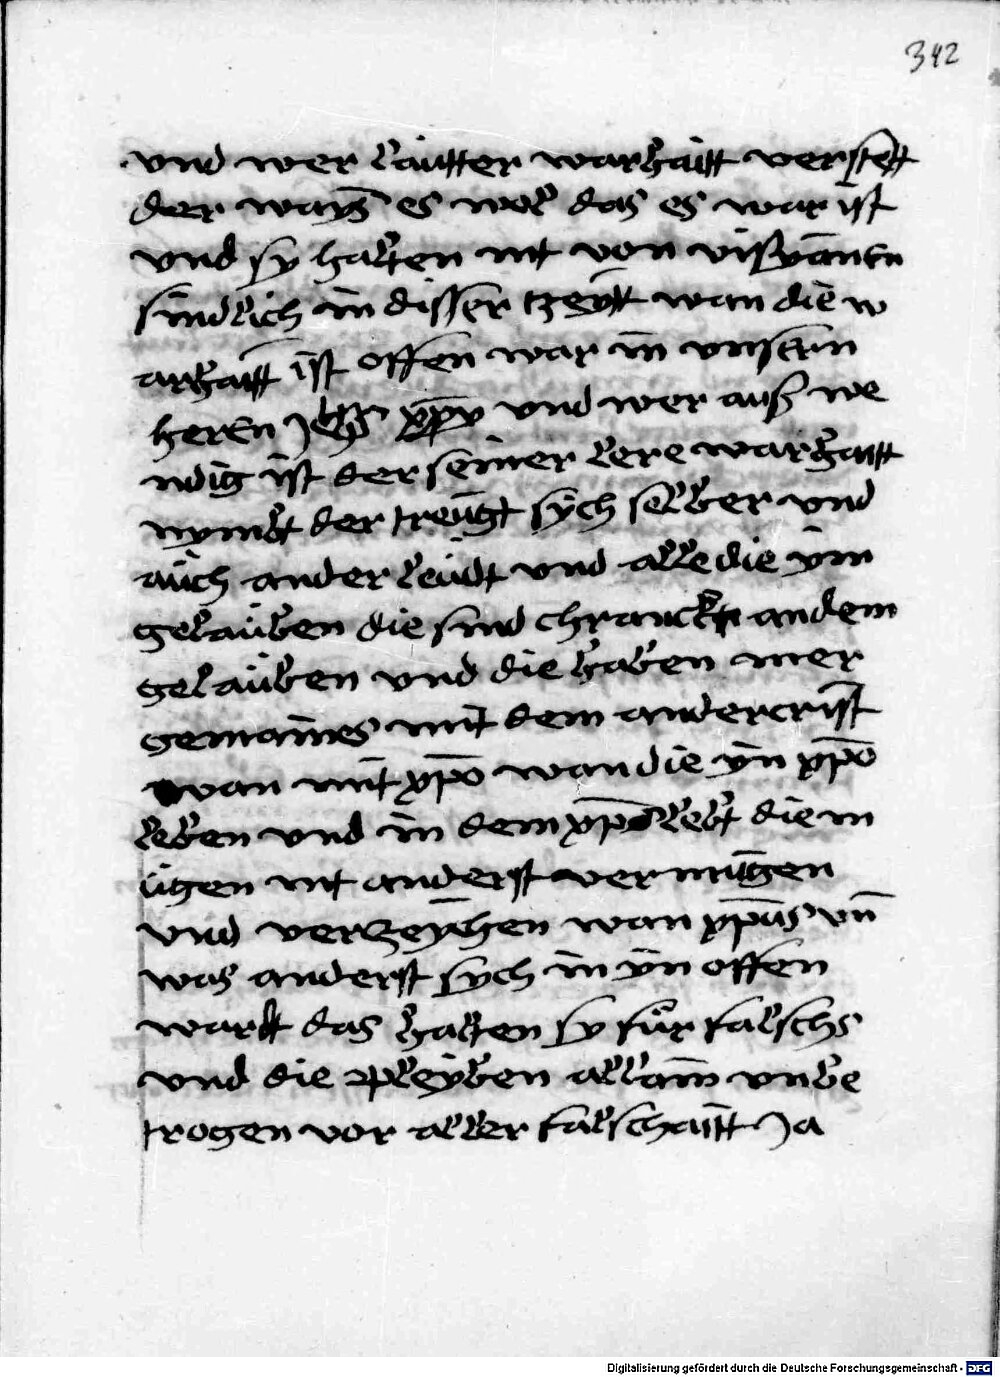 342
vnd wer lautter warhaitt verstett
der ways es wol das es war ist
vnd sy halten nit von
sindlich in disser tzeytt wan die w
arhaitt ist offen war in vnserm
heren Jhesu xpo vnd wer auß we
ndig ist der seiner lere warhaitt
nymbt der treugt sych selber vnd
auch ander leudt vnd alle die ym
gelauben die sind chranck an dem
gelauben vnd die haben mer
gemaines mit dem andercrist
wan mit xpo wan die yn xpo
leben vnd in dem xps lebt die m
ügen nit anderst vermugen
vnd verzeychen wan xpus vn̄
was anderst sych in yn offen
wartt das halten sy für falschs
vnd die pleyben allain vnbe
trogen vor aller falschaitt Ja
Digitalisierung gefördert durch die Deutsche Forschungsgemeinschaft - DFG